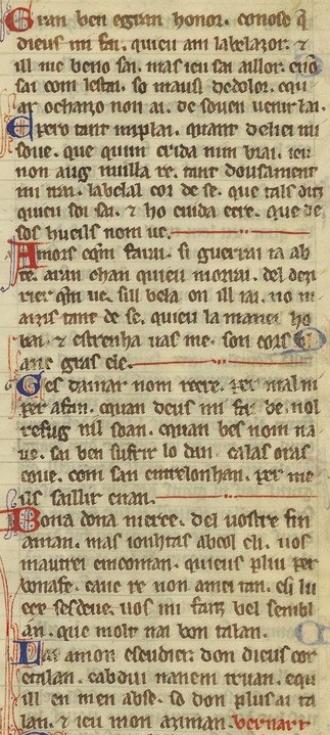 Gran ben egran honor. conosc q̃
dieus mi fai. quieu am labelazor. ⁊
ill me
sai com lestai. so
ar ochaizo non ai. de souen uenir lai.
Epero tant miplai. quant deliei mi
soue. que quim crida nim brai. ieu
non aug nuilla re. tant dousament
mi trai. labelal cor de se. que tals diti
quieu soi sai. ⁊ ho cuida ecre. que de
sos hueils nom ue.
Amors eqm farai. si guerrai ia ab
te. aran chan quieu morrai. del dezi
rier qm ue. sill bela on ill iai. no m
aizis tant de se. quieu la manei ho
bai. ⁊ estrenha uas me. son cors
anc gras ele.
Ges damar nom recre. per mal ni
per afan. cquan deus mi fai be. nol
refug nil soan. cquan bes nom na
ue. sai ben sufrir lo dan. calas oras
coue. com san entrelonhan. per me
ils saillir enan.
Bona dona merce. del uostre fin
aman. mas ionhtas abcol cli. uos
mautrei emcoman. quieus pliu per
bonafe. canc re non amei tan.
uos mi faitz bel sembl
an. que molt nai bon talan.
Las amon escudier. don dieus cor
etalan. cabdui nanem truan. equ
ill en men abse. so don plus ai ta
lan. ⁊ ieu mon aziman. bernart